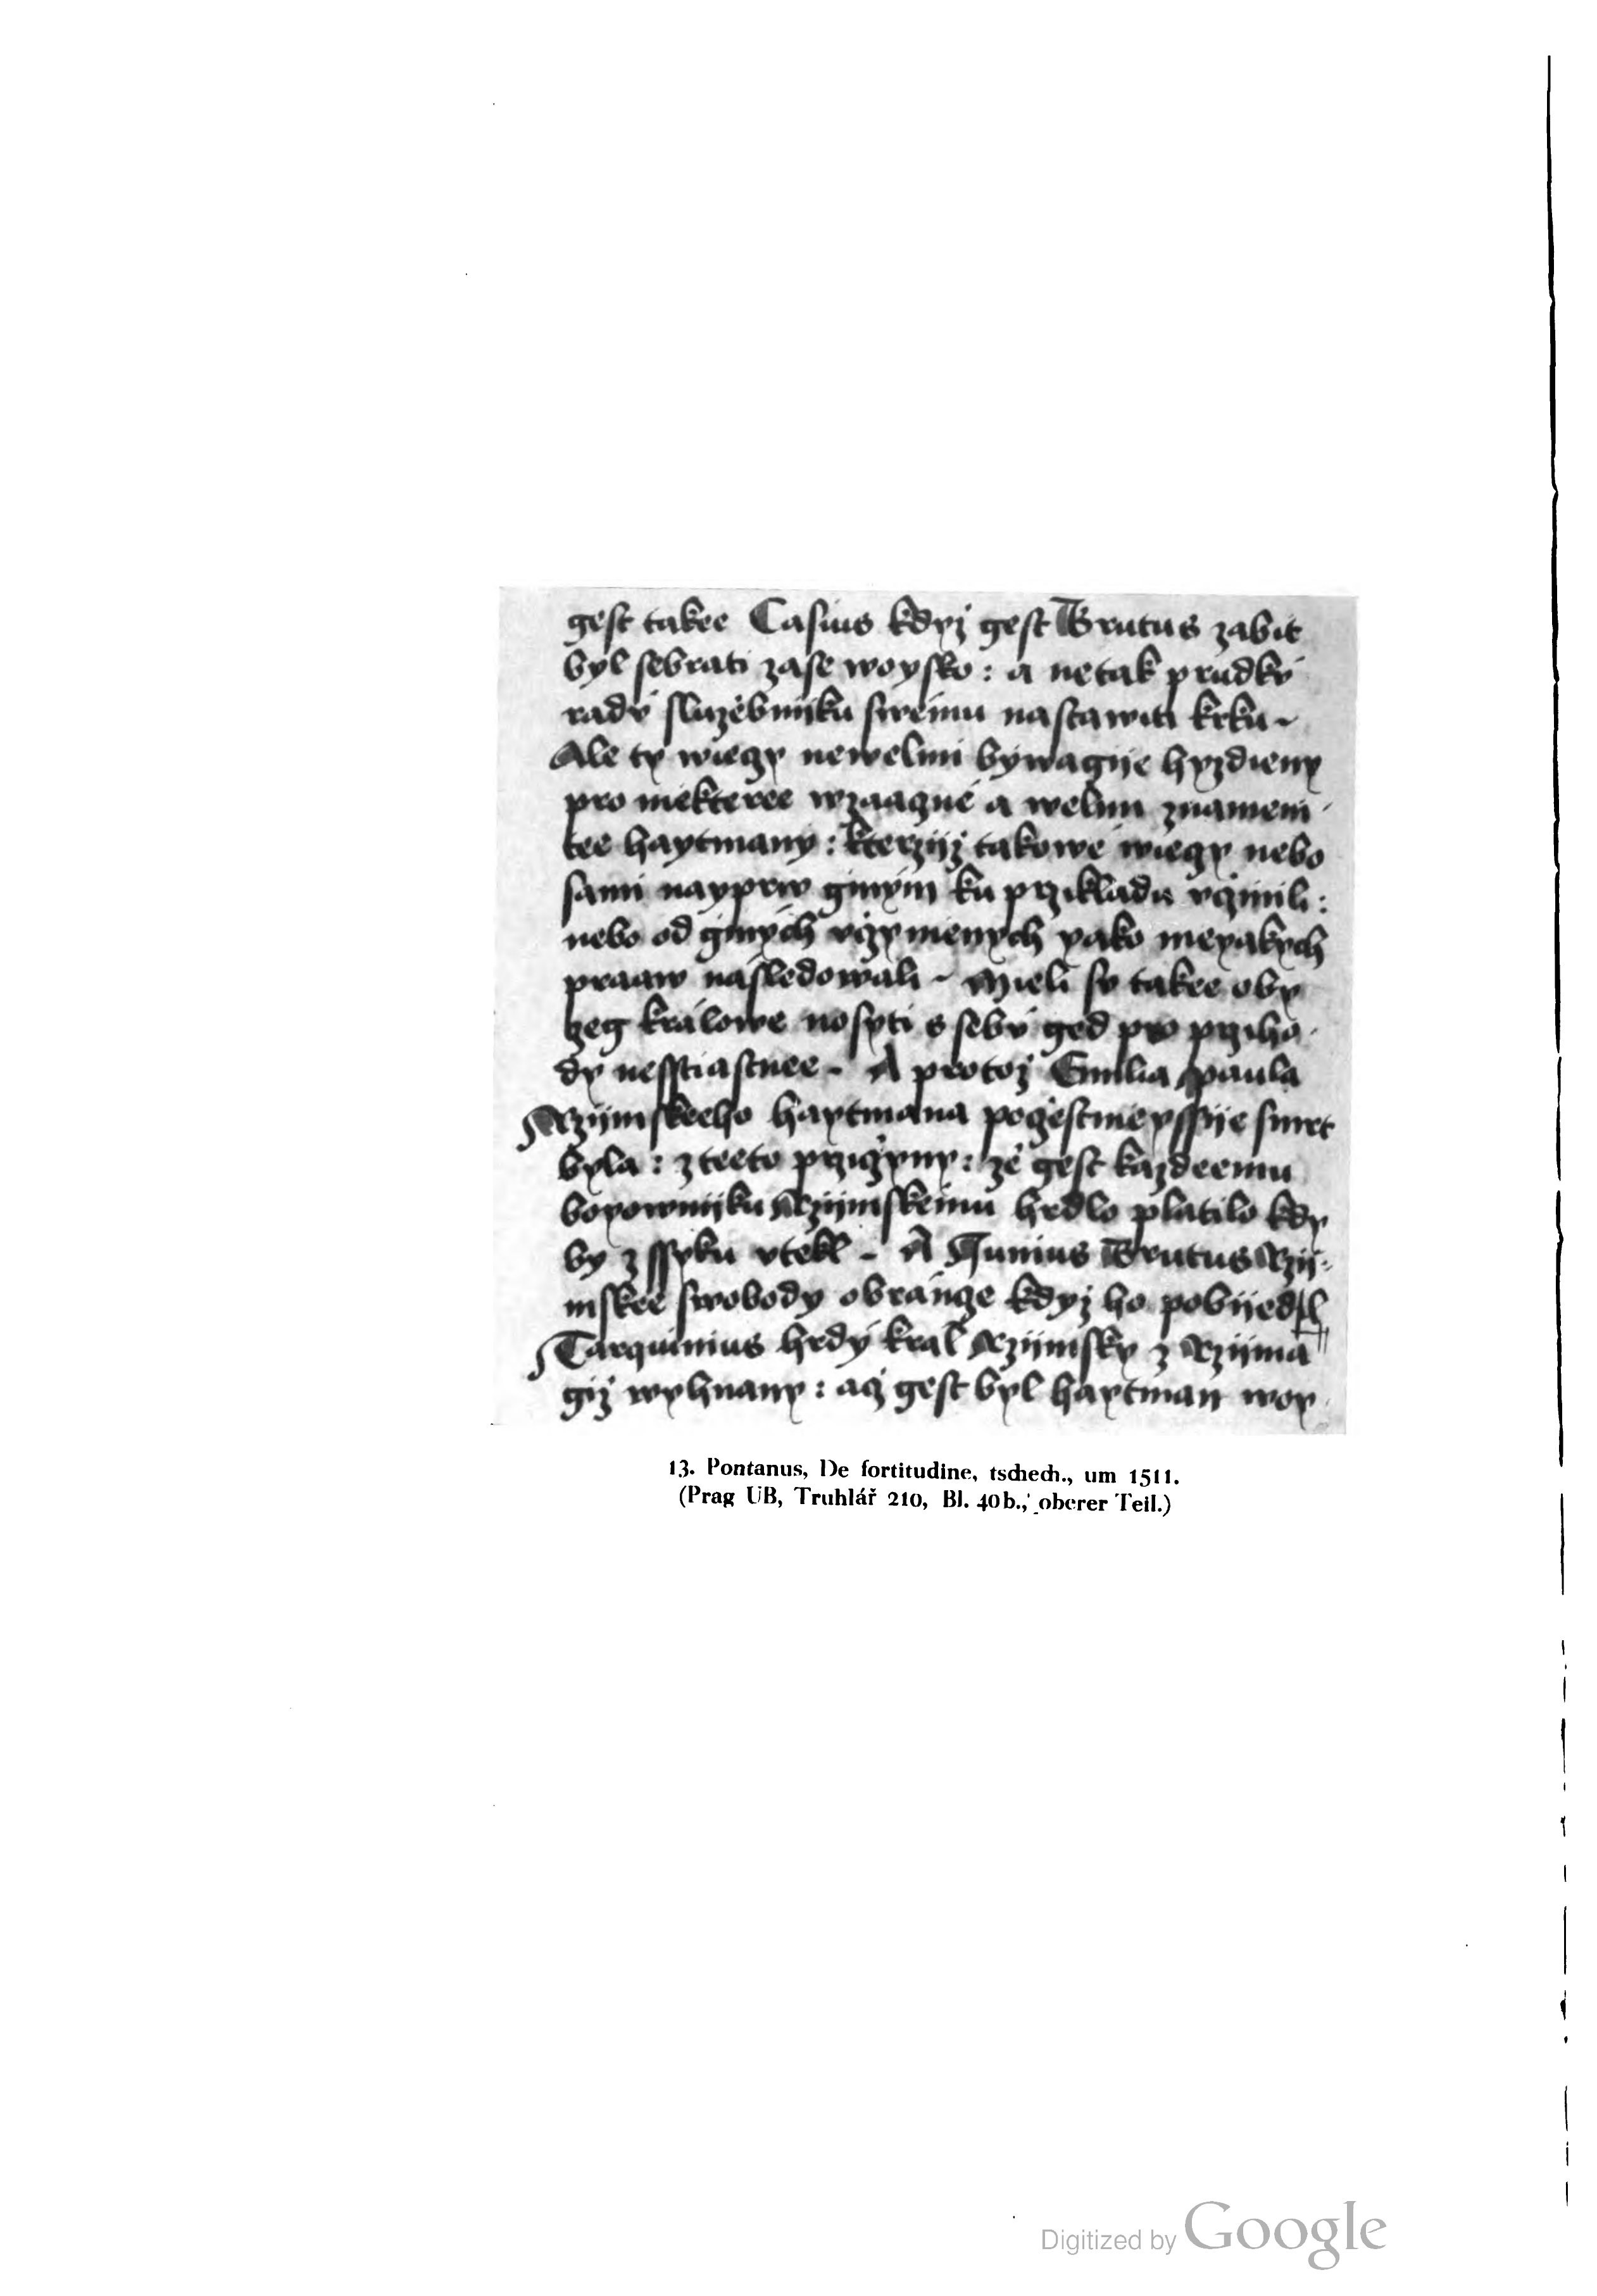 gest takee Casius kdyz gest Brutus zabit
byl sebrati zase woysko : a netak prudký
radý služebnijku swemu nastawiti krku ~
Ale ty wieczy newelmi bywagije hyzdieny
pro niektere wzaaczné a welmi znameni
tee haytmany : kterzijz takowé wieczy nebo
sami nayprw ginym ku przikladu vczinili :
nebo od ginych vczynienych yako nieyakych
praaw nasledowali ~ Mieli sv takee oby
czeg králowe nosyti s sebý ged pro prziho
dy nesstiastnee ~ A protoz Emilia Paula
Rzijmskeeho haytmana poczestnieyssije smrt
byla : z teeto przicziny : zé gest kazdeemu
boyownijku Rzijmskému hrdlo platilo kdy
by z ssyku vtekl ~ A Junius Brutus Rzij
mskee swobody obránce kdyz ho pobijed
Tarquinius hrdý král Rzijmsky z Rzijma
giz wyhnany : acz gest byl haytman woy
13. Pontanus, De fortitudine, tschech., um 1511.
(Prag UB, Truhlář 210, Bl. 40b., oberer Teil.)
Digitized by Google